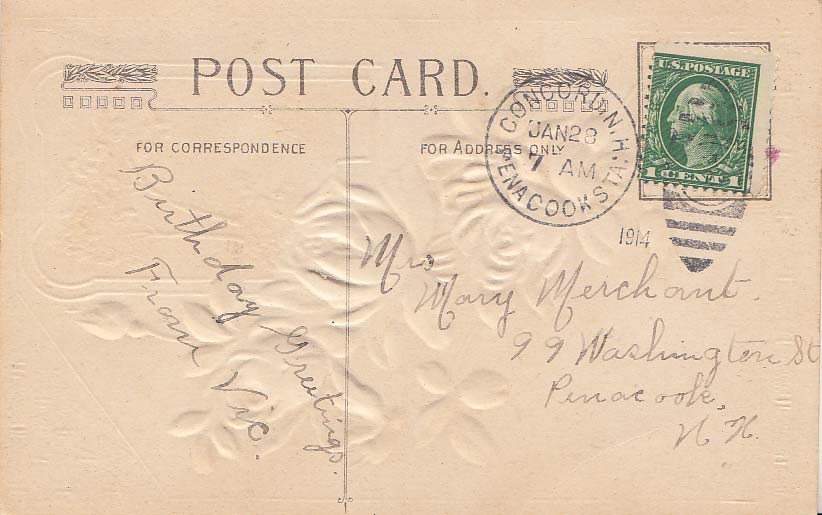 POST CARD.
FOR CORRESPONDENCE
FOR ADDRESS ONLY
CONCORD, N.H.
JAN 28
7 AM
PENACOOK STA.
1914
U.S. POSTAGE
1 CENT 1
Birthday Greetings.
From Vic.
Mrs
Mary Merchant.
99 Washington St
Penacook,
N.H.